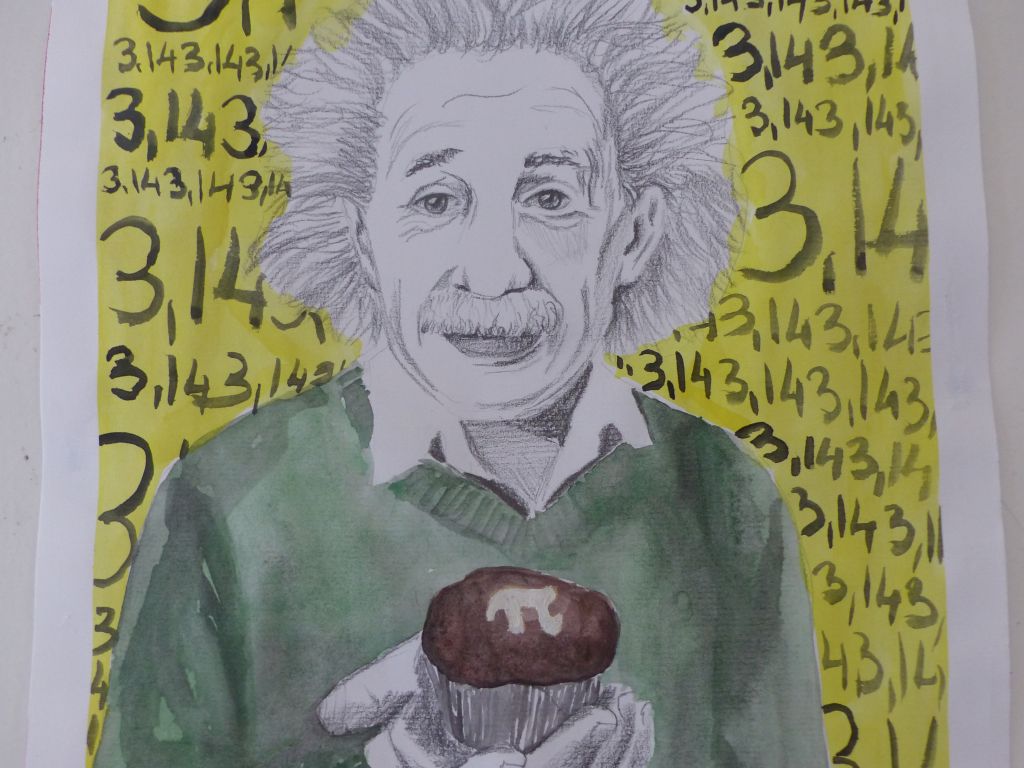 3,143,143,1
3,143,
3,143,143,14
3,14
3,143,143
3
3
3
4
3,143,143,143,1
3,143,14
3,143,143,
3,14
3,143,143
3,143,143,143,
3,143,14
3,143,1
3,143
43,14
3,1
π